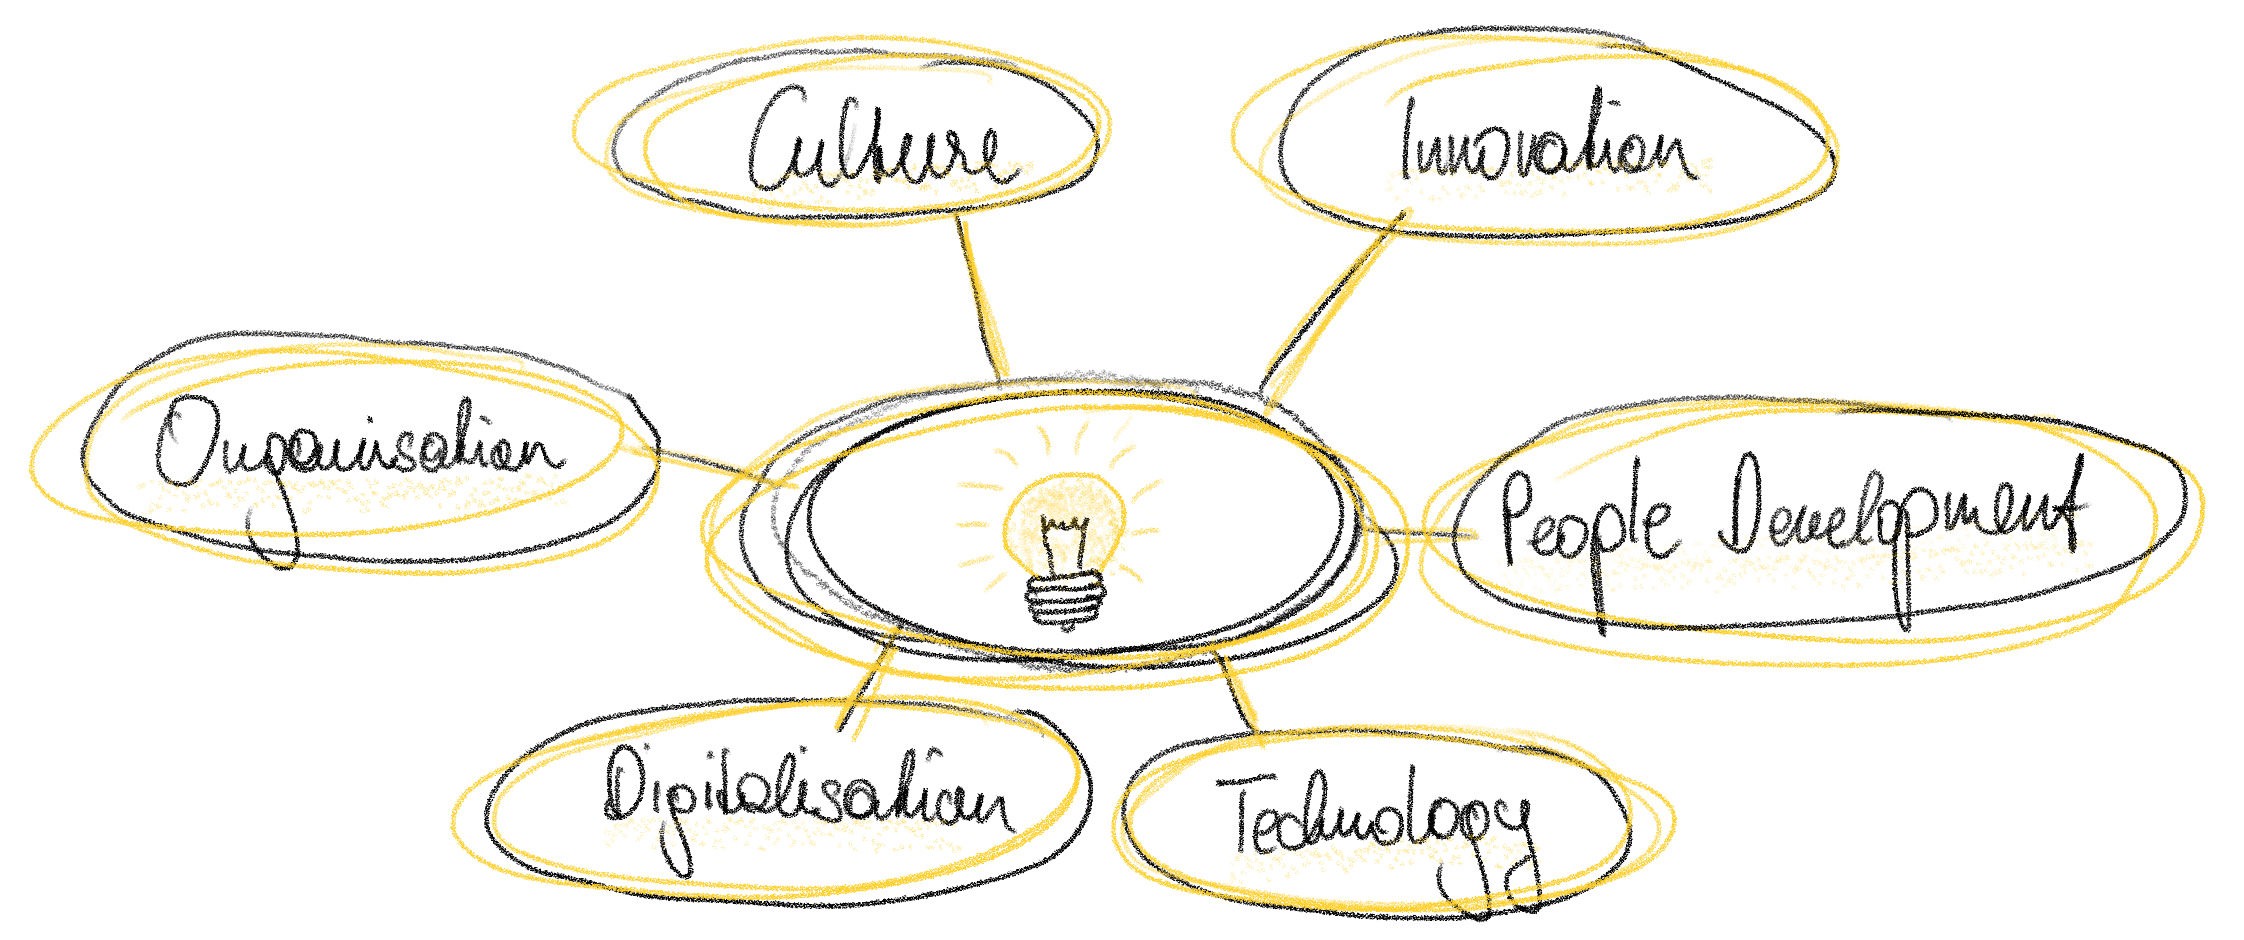 Culture
Innovation
Organisation
People Development
Digitalisation
Technology